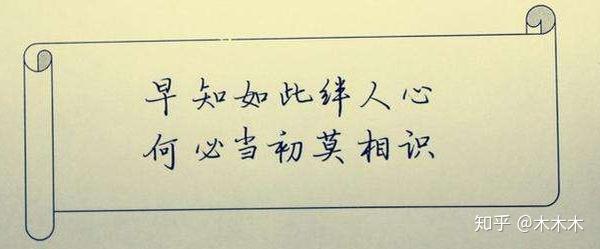 早知如此绊人心
何必当初莫相识
知乎 @木木木